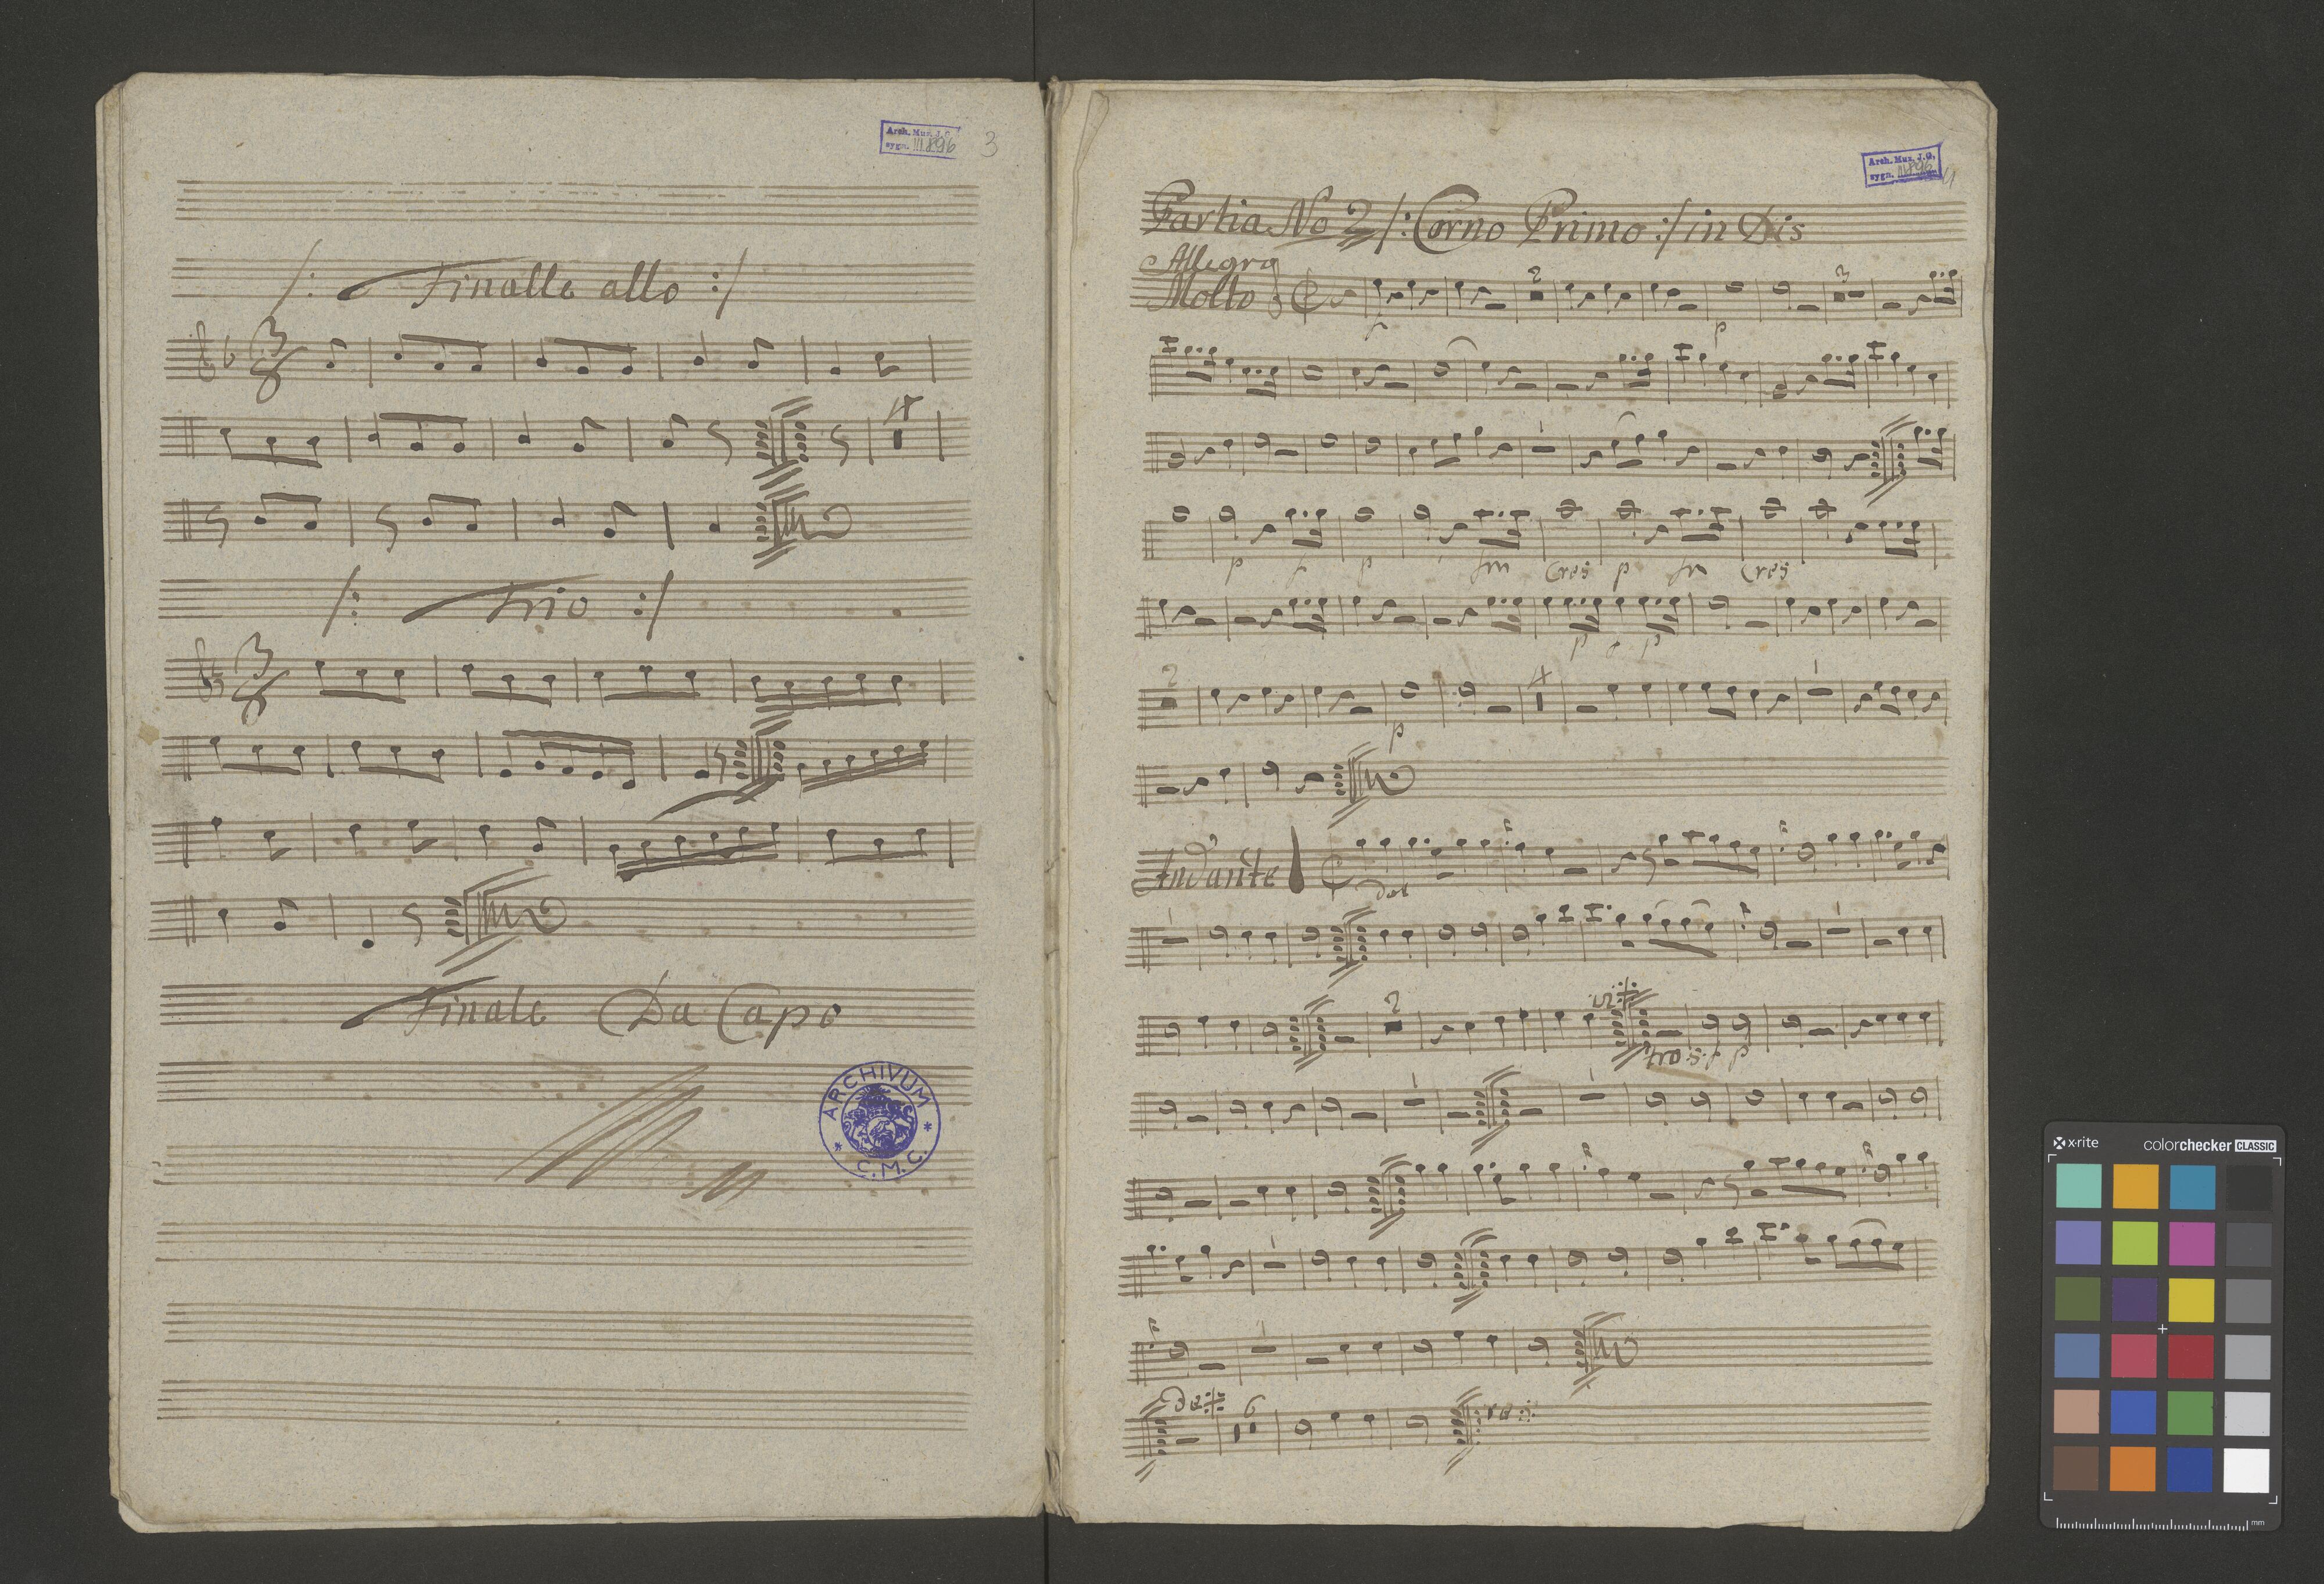 Arch. Mus. J. G.
sygn. III 896
3
/: Finalle allo :/
3
8
4
/: Trio :/
3
8
Finale Da Capo
ARCHIVUM
* C.M.C. *
Arch. Mus. J. G.
sygn. III 896
4
Partia No 2 /: Corno Primo :/ in Dis
Allegro
Molto
2
3
f
p
1
p f p fm Cres p fm Cres
p f p
2
4
1
p
Andante
dol
1
1
2
1
1
1
1
6
x-rite
colorchecker CLASSIC
mm